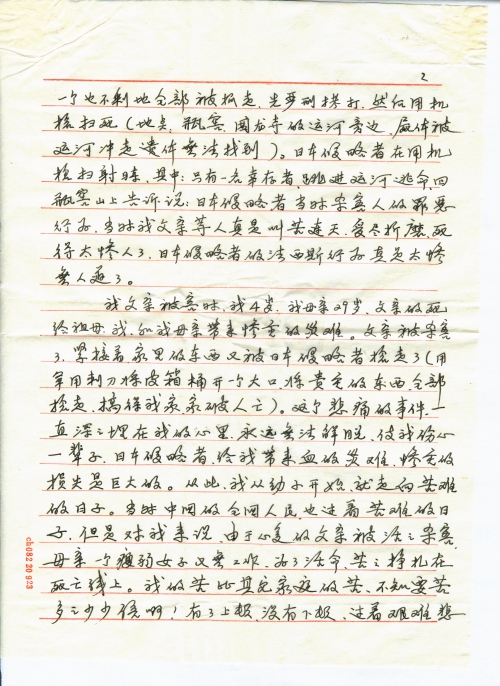 2
一个也不剩地全部被抓走，先严刑拷打，然后用机
枪扫死（地点，瓶窑，国龙寺的运河旁边，尸体被
运河冲走遗体无法找到）。日本侵略者在用机
枪扫射时，其中：只有一名幸存者，跳进运河逃命，回
瓶窑山上告诉说：日本侵略者当时杀害人的罪恶
行为，当时我父亲等人真是叫苦连天，受尽折磨，死
得太惨人了，日本侵略者的法西斯行为真是太惨
无人道了。
我父亲被害时，我4岁，我母亲29岁，父亲的死
给祖母、我，和我母亲带来惨重的灾难。父亲被杀害
了，紧接着家里的东西又被日本侵略者抢走了（用
军用刺刀将皮箱桶开一个大口将贵重的东西全部
抢走，搞得我家家破人亡）。这个悲痛的事件，一
直深深埋在我的心里，永远无法解脱，使我伤心
一辈子，日本侵略者，给我带来血的灾难，惨重的
损失是巨大的。从此，我从幼子开始就走向苦难
的日子。当时中国的全国人民也过着苦难的日
子，但是对我来说，由于心爱的父亲被活活杀害，
母亲一个瘦弱女子又无工作，为了活命，苦苦挣扎在
死亡线上。我的苦比其它家庭的苦，不知要苦
多多少少倍啊！有了上顿，没有下顿，过着艰难悲
cb082 20 923